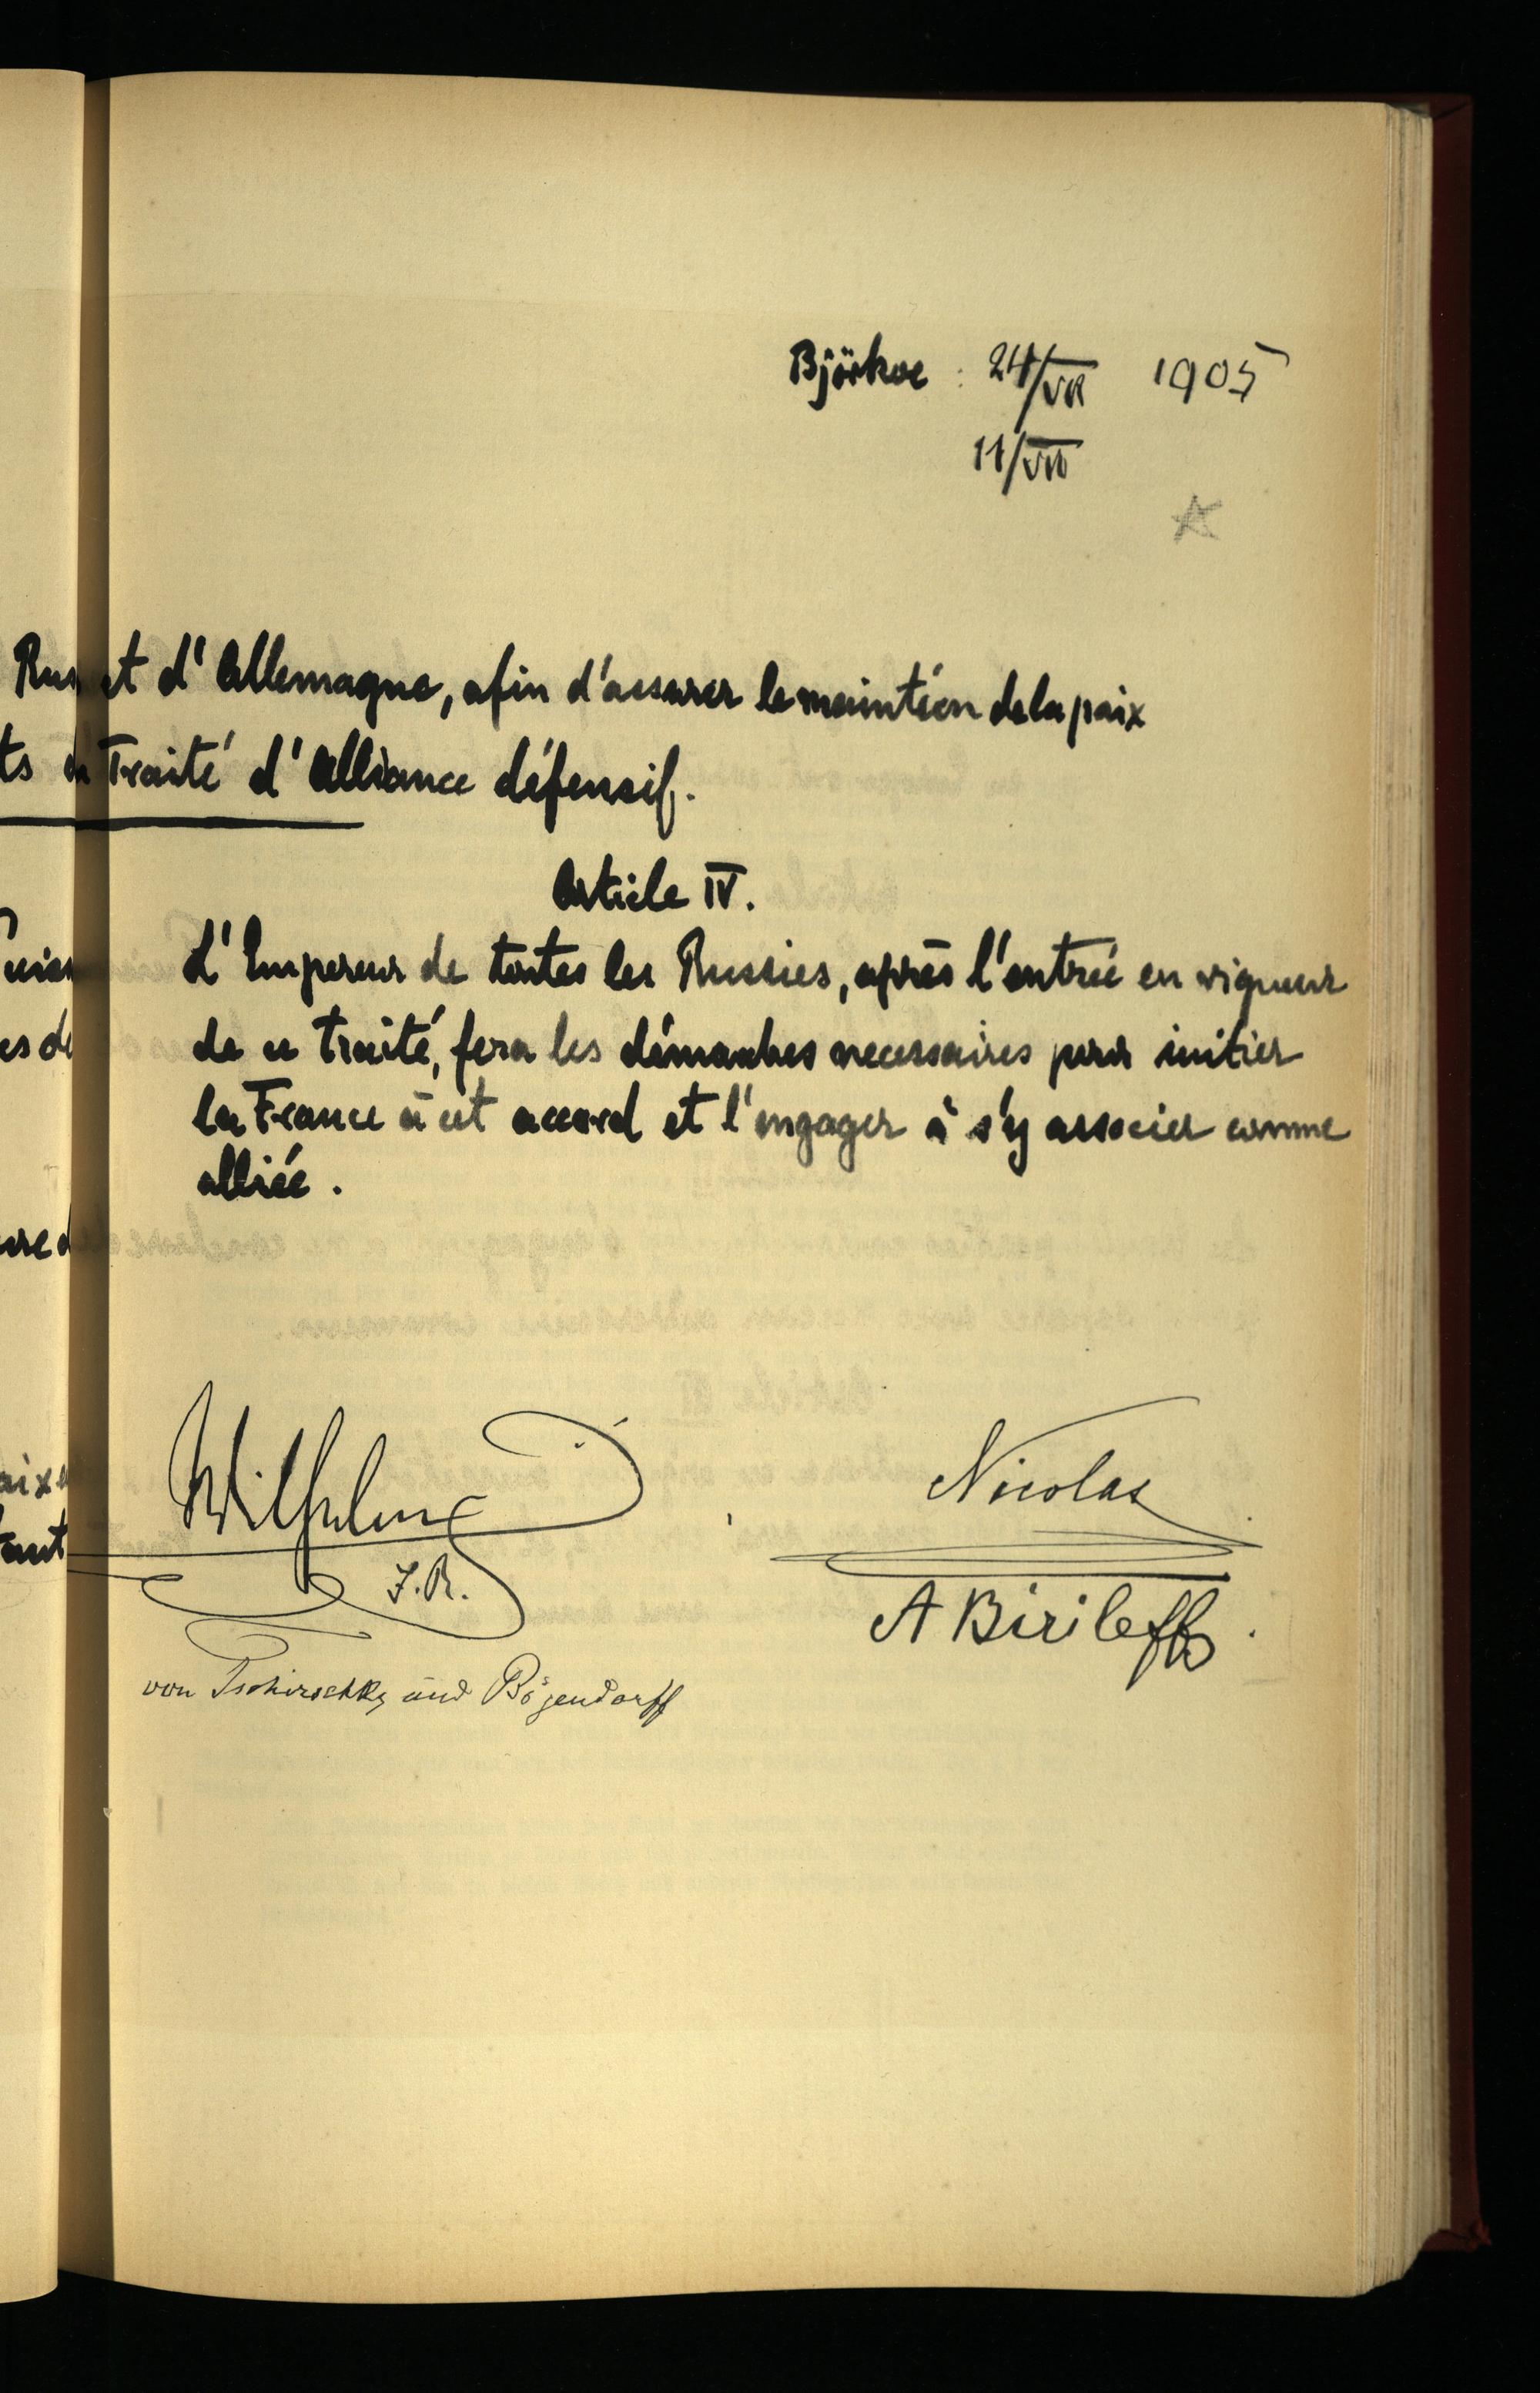 Björkoe : 24/VII 1905
11/VII
Rus et d'Allemagne, afin d'assurer le maintien de la paix
ts Traité d'Alliance défensif.
Article IV.
L'Empereur de toutes les Russies, après l'entrée en vigueur
de ce traité, fera les démarches necessaires pour initier
la France à cet accord et l'engager à s'y associer comme
alliée.
Wilhelm
I.R.
von Tschirschky und Bögendorff
Nicolas
A Birileff